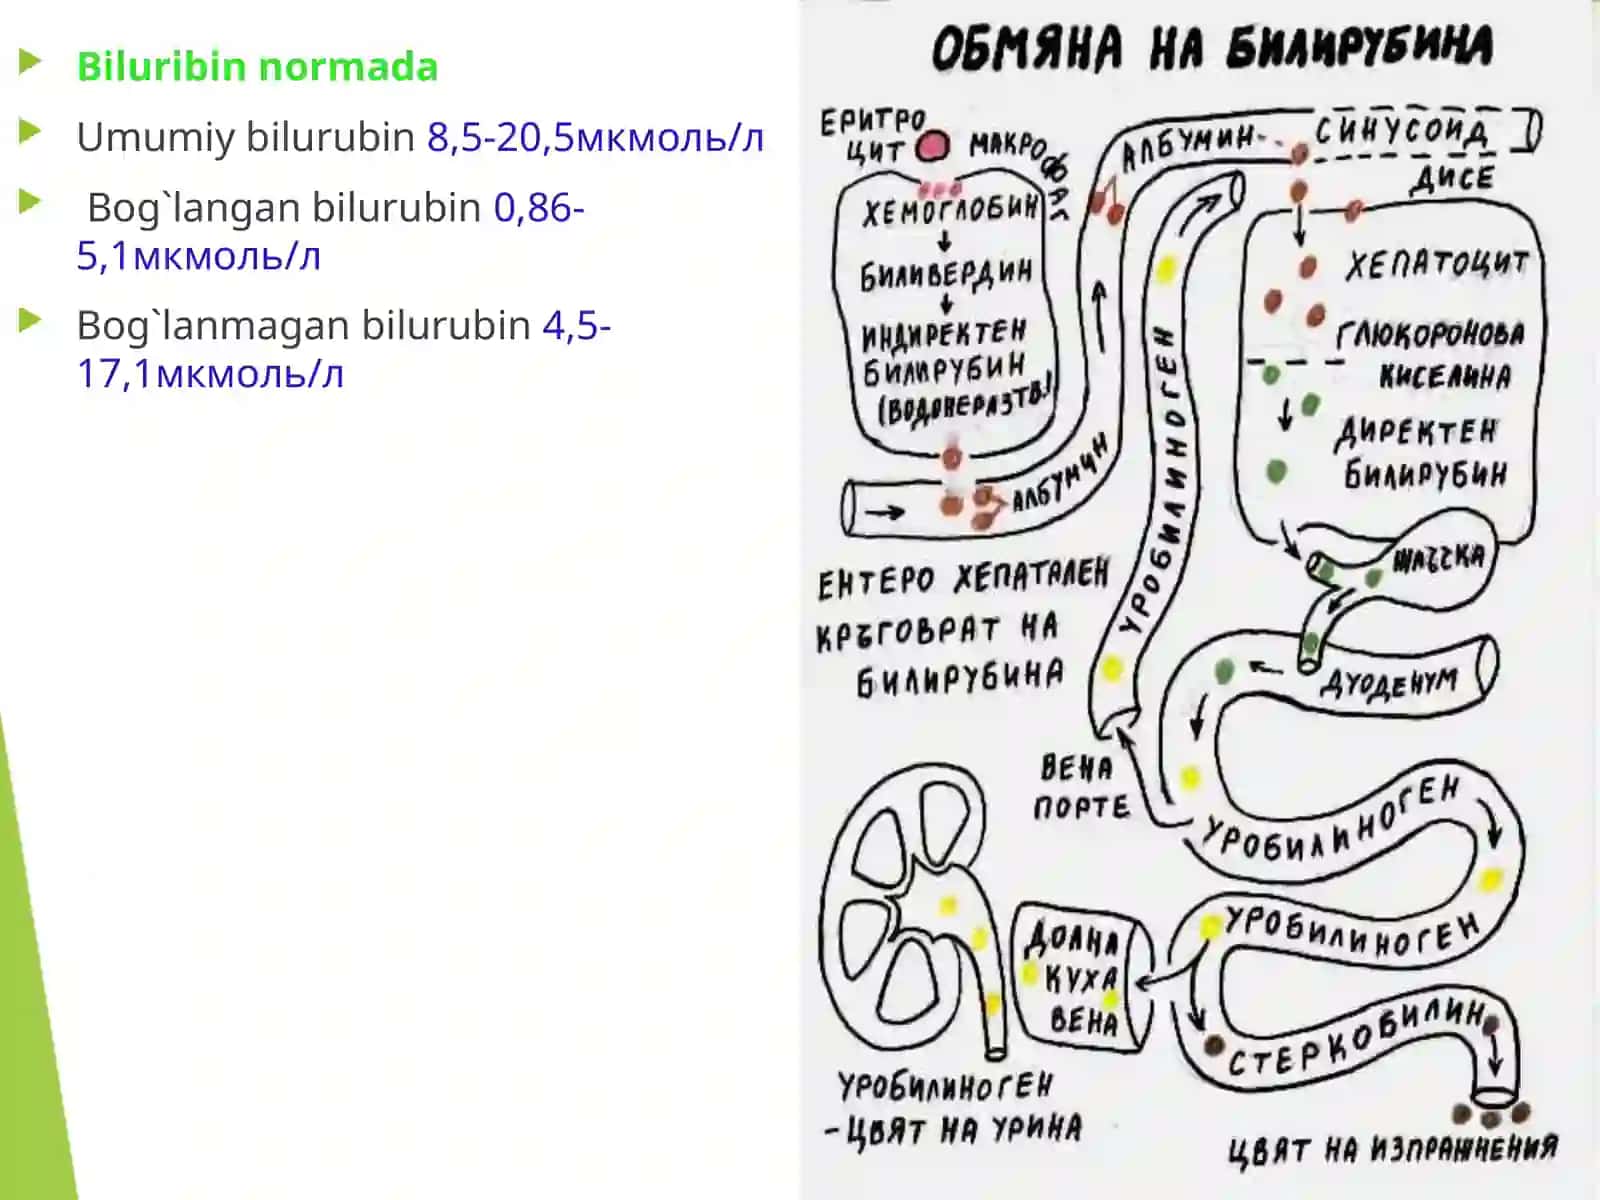 Biluribin normada
Umumiy bilurubin 8,5-20,5мкмоль/л
Bog`langan bilurubin 0,86-
5,1мкмоль/л
Bog`lanmagan bilurubin 4,5-
17,1мкмоль/л
ОБМЯНА НА БИЛИРУБИНА
ЕРИТРО
ЦИТ
МАКРОФАГ
ХЕМОГЛОБИН
БИЛИВЕРДИН
ИНДИРЕКТЕН
БИЛИРУБИН
(ВОДОНЕРАЗТВ.)
АЛБУМИН
АЛБУМИН
СИНУСОИД
ДИСЕ
ХЕПАТОЦИТ
ГЛЮКОРОНОВА
КИСЕЛИНА
ДИРЕКТЕН
БИЛИРУБИН
ЖЛЪЧКА
ДУОДЕНУМ
УРОБИЛИНОГЕН
ЕНТЕРО ХЕПАТАЛЕН
КРЪГОВРАТ НА
БИЛИРУБИНА
ВЕНА
ПОРТЕ
УРОБИЛИНОГЕН
УРОБИЛИНОГЕН
ДОЛНА
КУХА
ВЕНА
СТЕРКОБИЛИН
УРОБИЛИНОГЕН
-ЦВЯТ НА УРИНА
ЦВЯТ НА ИЗПРАЖНЕНИЯ